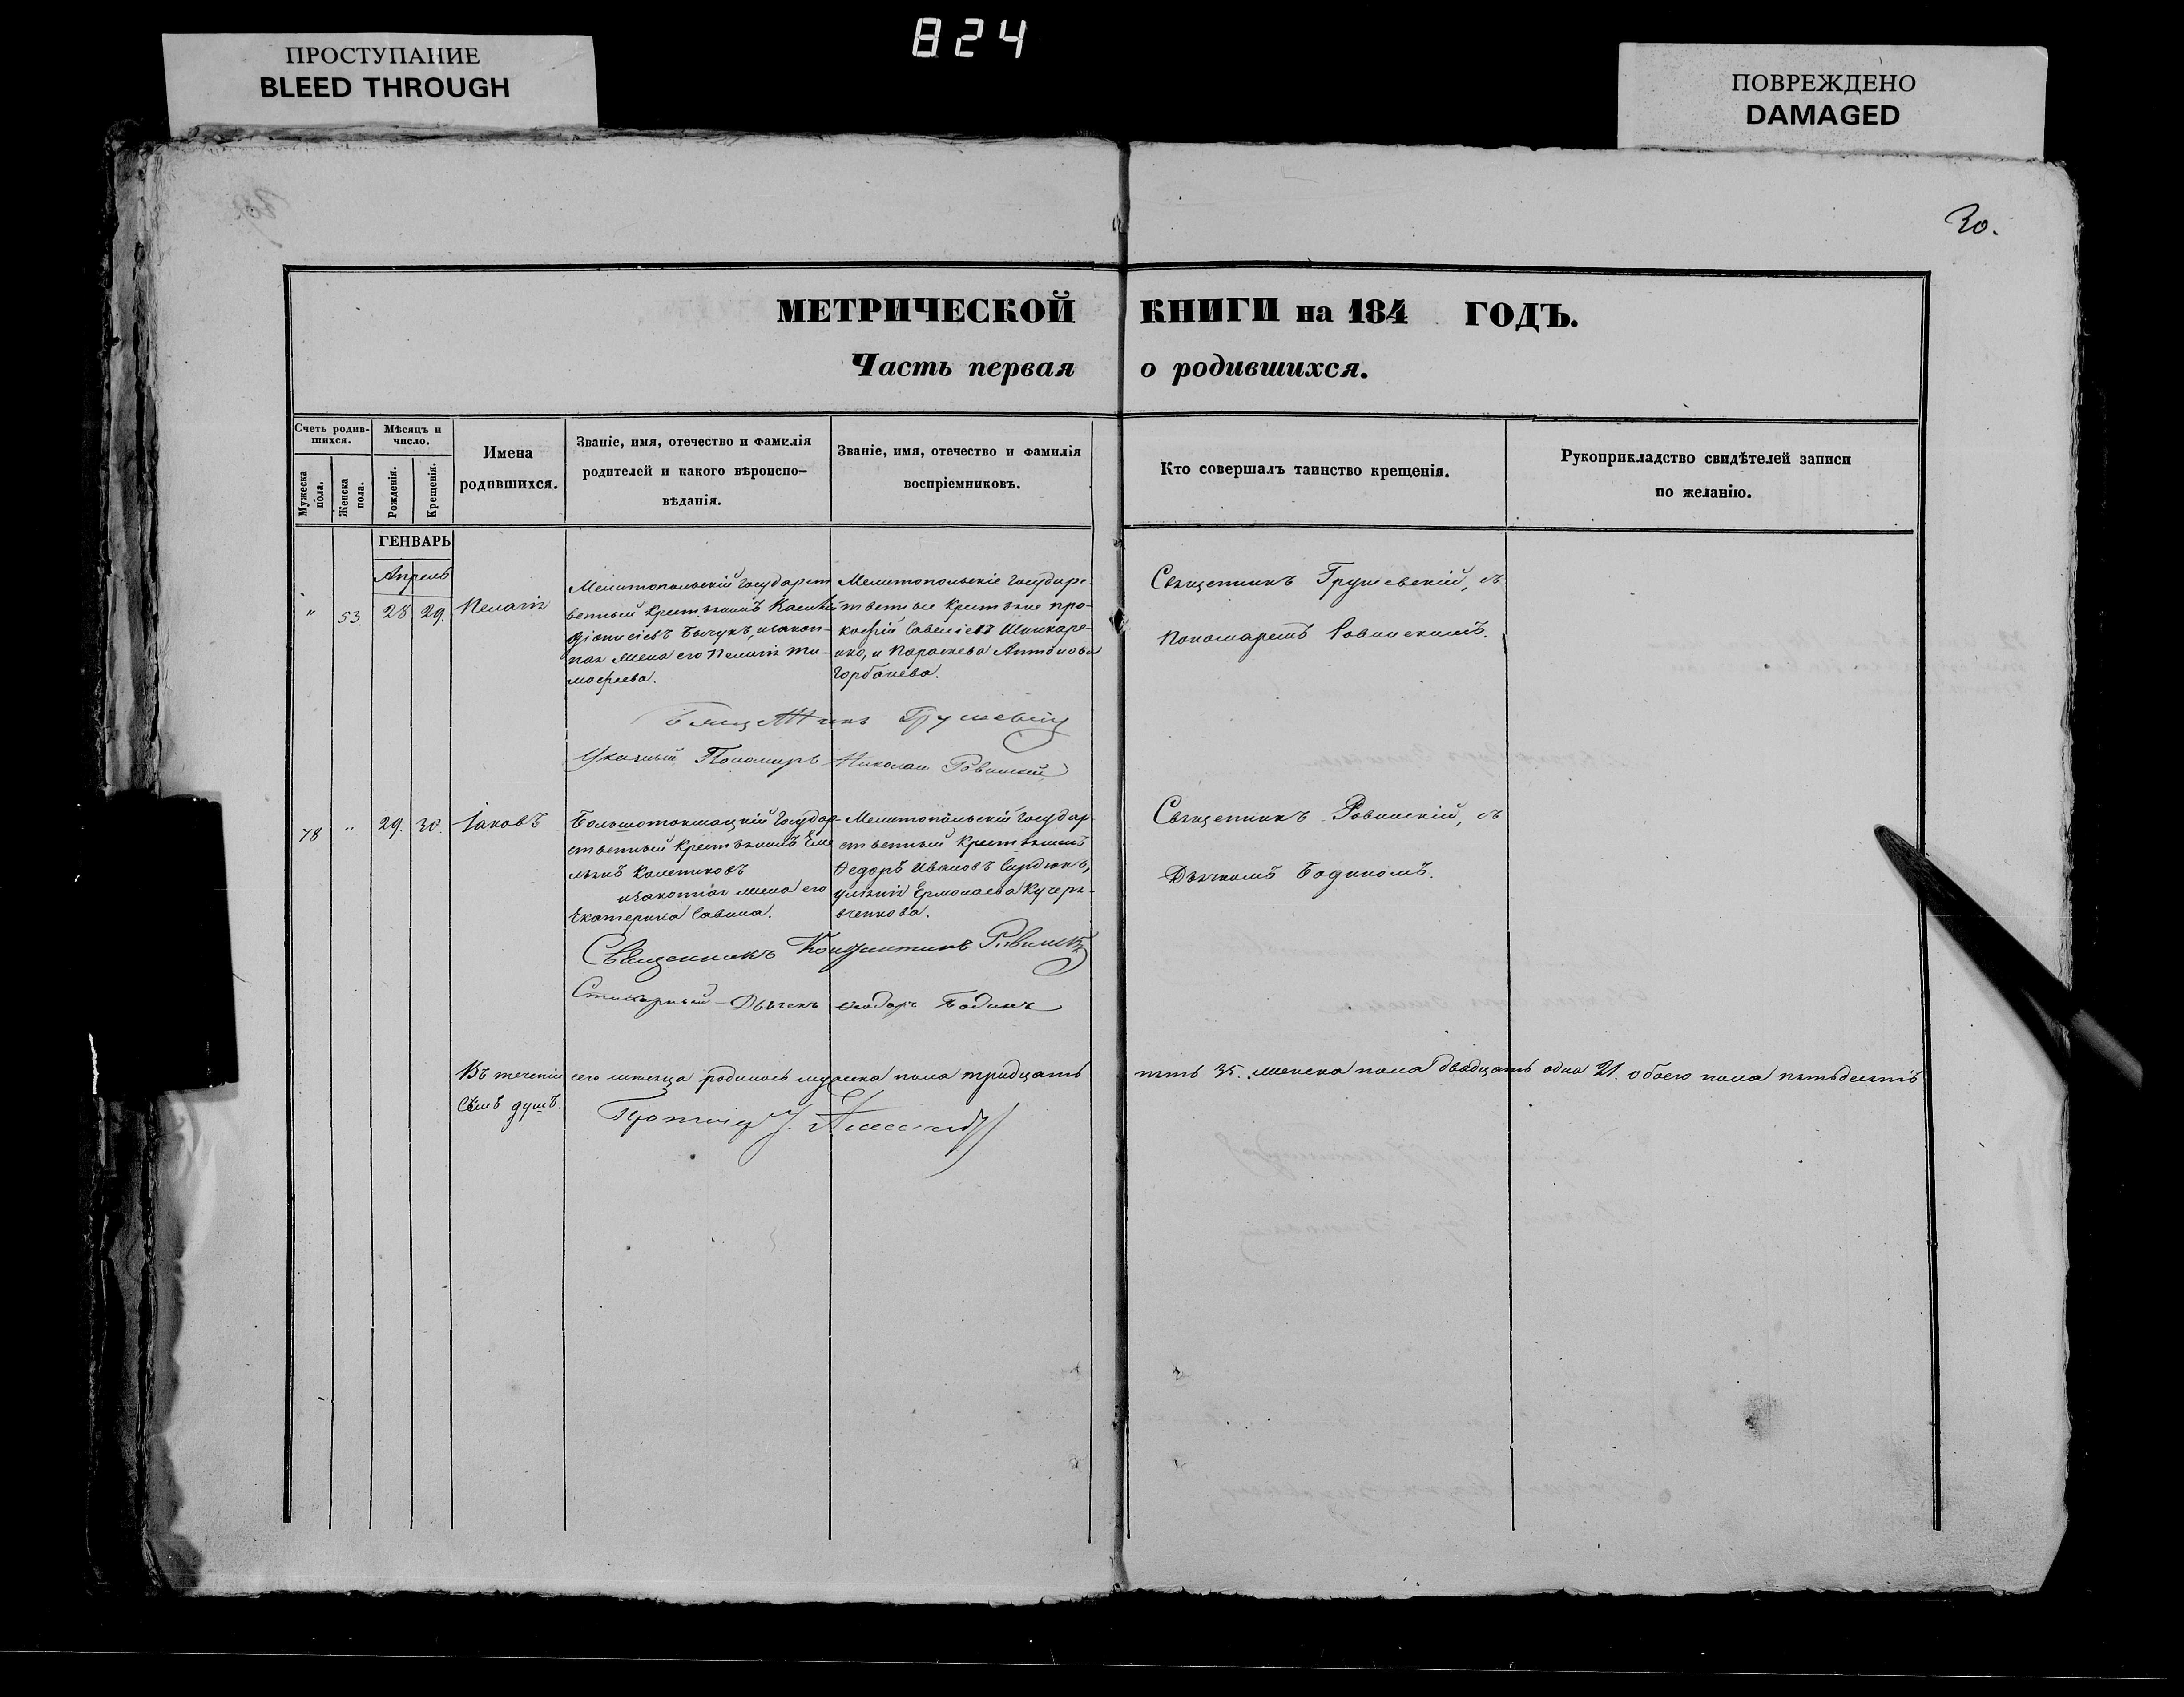 824
ПРОСТУПАНИЕ
BLEED THROUGH
ПОВРЕЖДЕНО
DAMAGED
30.
МЕТРИЧЕСКОЙ КНИГИ на 184 ГОДЪ.
Часть первая о родившихся.
Счетъ родив-
шихся.
Мужеска
пола.
Женска
пола.
Мѣсяцъ и
число.
Рожденія.
Крещенія.
Имена
родившихся.
Званіе, имя, отечество и фамилія
родителей и какого вѣроиспо-
вѣданія.
Званіе, имя, отечество и фамилія
воспріемниковъ.
Кто совершалъ таинство крещенія.
Рукоприкладство свидѣтелей записи
по желанію.
ГЕНВАРЬ
Апрель
" 53. 28 29. Пелагія
Мелитопольскій государст
венный крестьянинъ
Діонисіевъ Бычукъ, изакон-
ная жена его Пелагія Ти-
мофеева.
Мелитопольскіе государ-
ственные крестьяне про-
кофій Савеліевъ Шинкаре-
нко, и Параскева Антонова
Горбанева.
Священникъ Грушевскій, съ
Пономаремъ Ровинскимъ.
Священникъ Грушевскій
Указный Пономарь Николай Ровинскій
78 " 29. 30. Іаковъ
Большотокмацкій государ-
ственный крестьянинъ Еме
льянъ Колесниковъ
изаконная жена его
Екатерина Савина.
Мелитопольскій государ
ственный крестьянинъ
Ѳедоръ Ивановъ Сердюкъ,
Уліянія Ермолаева Кучеря-
вченкова.
Священникъ Ровинскій, съ
Дьячкомъ Бодикомъ.
Священникъ Константинъ Ровинскій
Стихарный Дьячекъ Ѳеодоръ Бодикъ
Въ теченіи сего месяца родилось мужска пола тридцать пять 35. женска пола двадцать одна 21. обоего пола пятьдесятъ
семъ душъ.
Протоіер